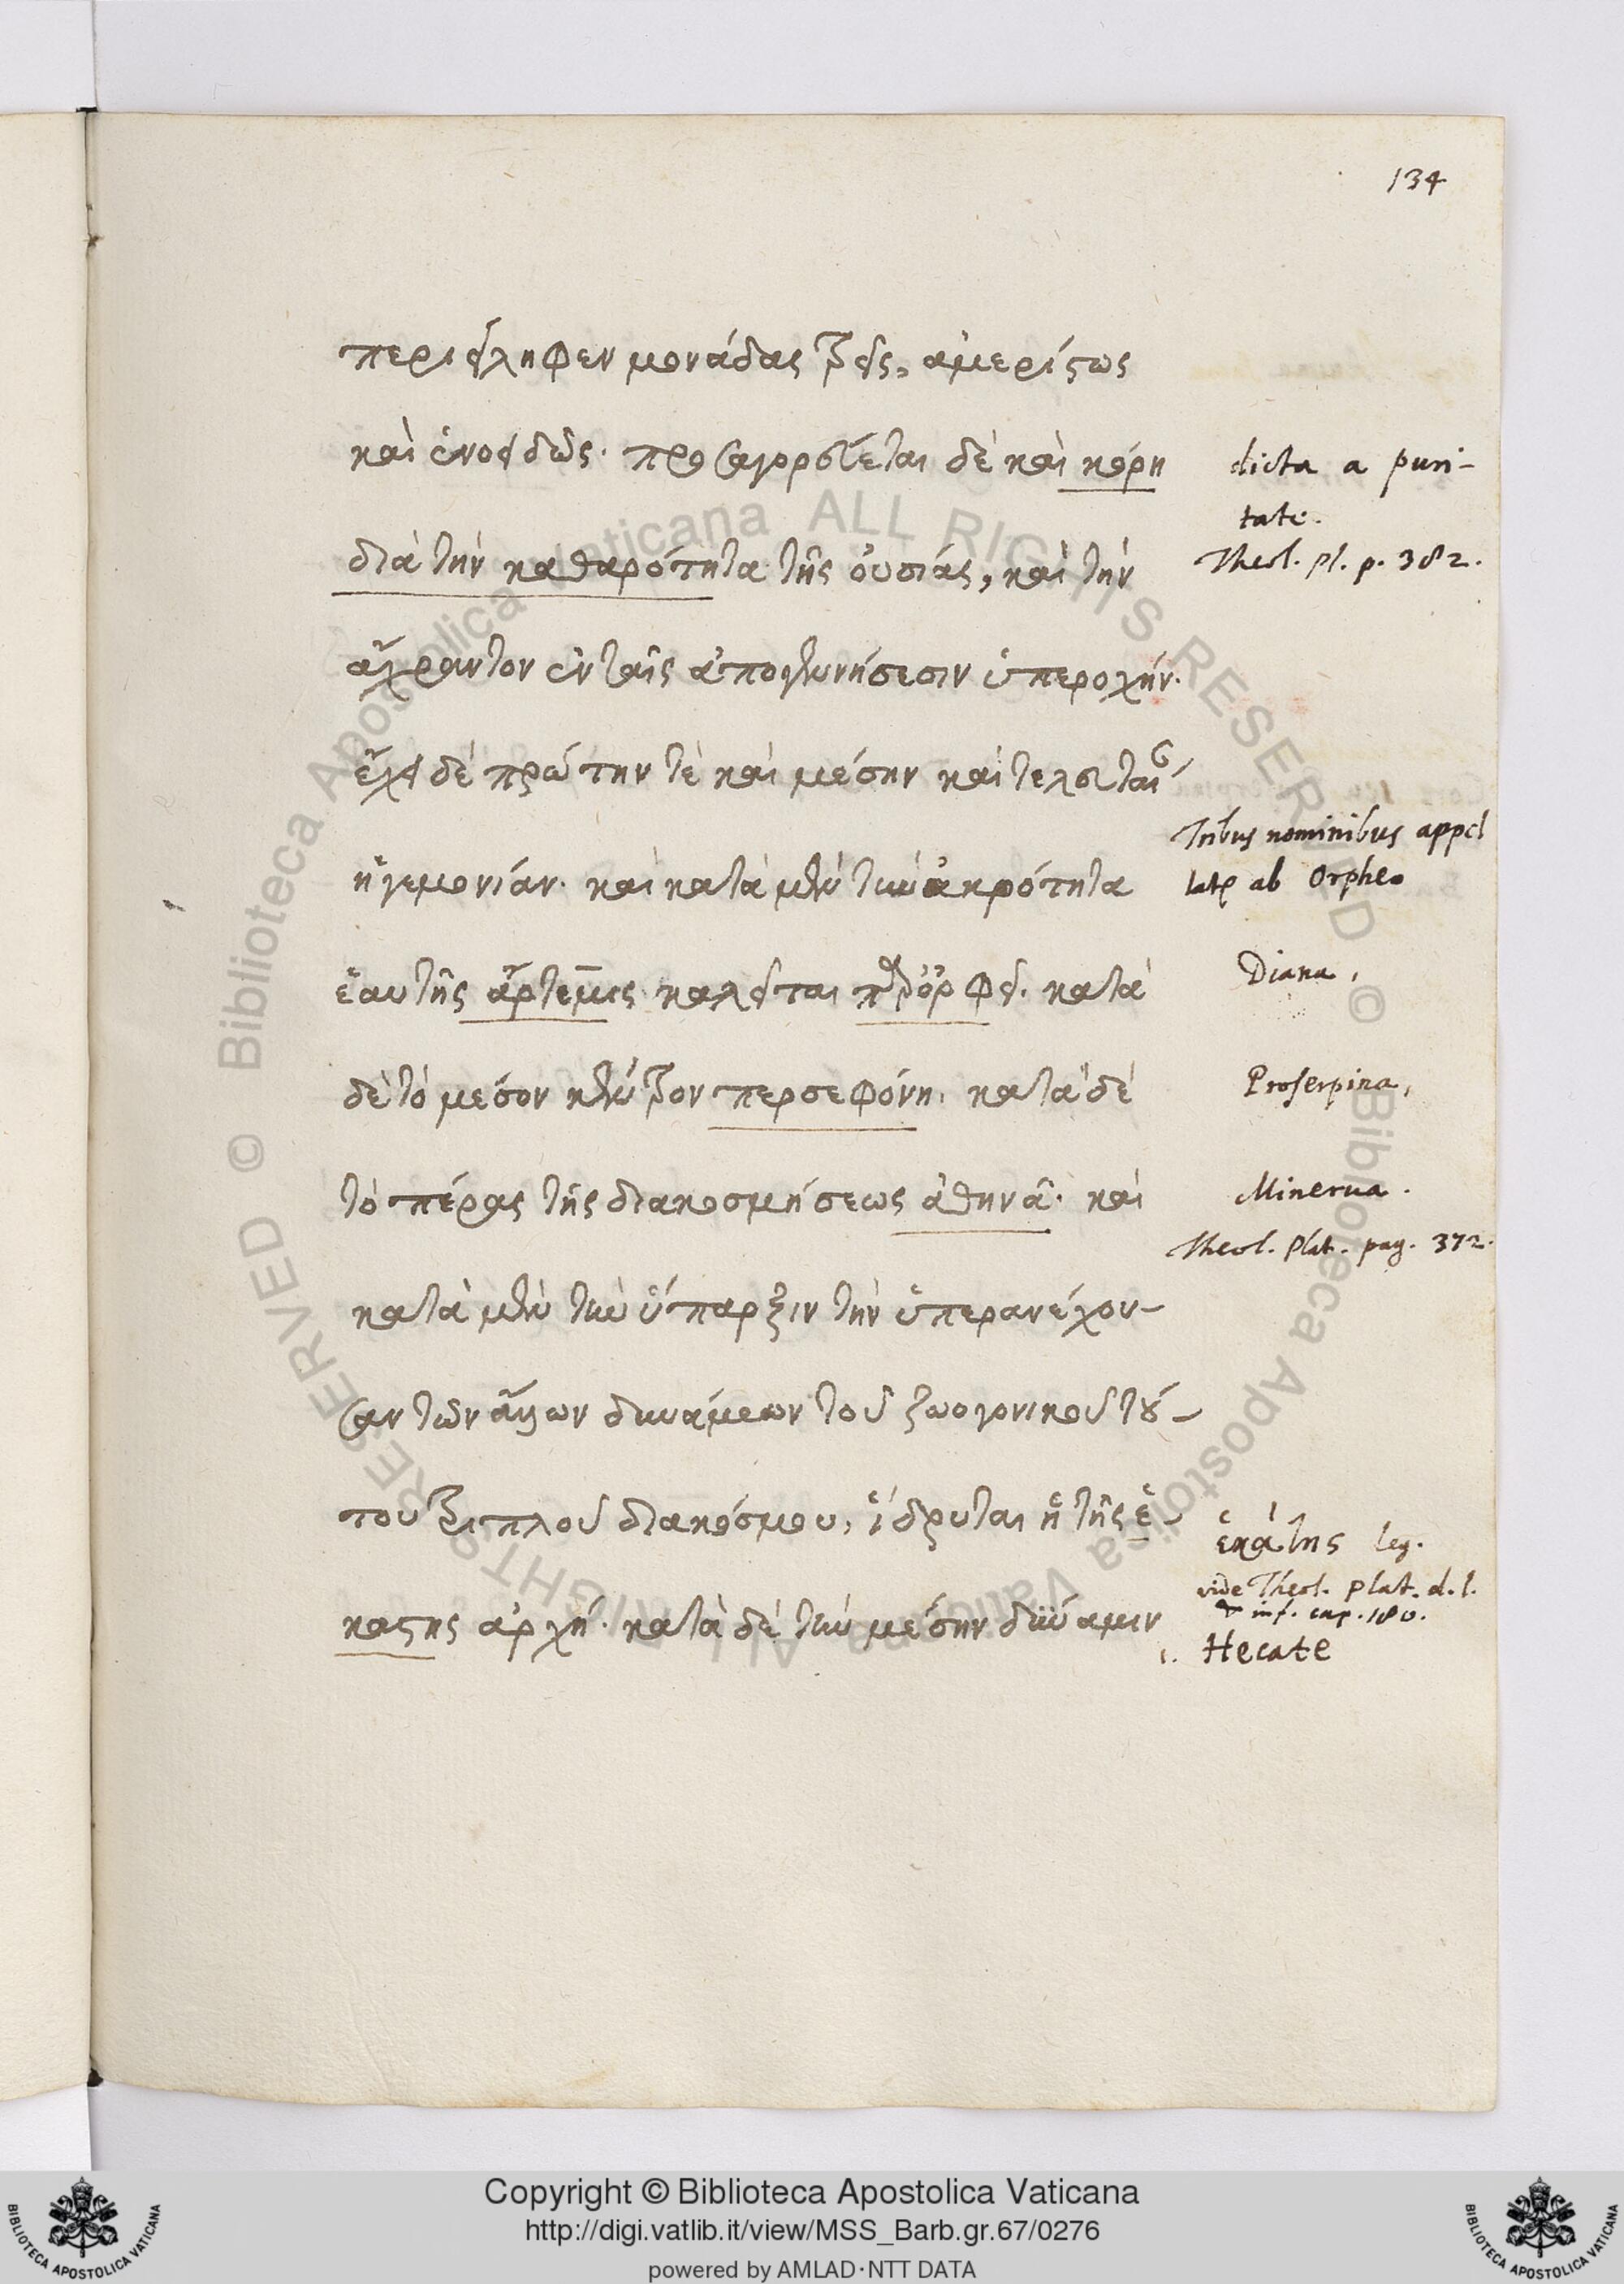 134
περιείληφεν μονάδας τρεῖς, ἀμερίστως
καὶ ἑνοειδῶς· προσαγορεύεται δὲ καὶ κόρη
dicta a puri-
tate.
διὰ τὴν καθαρότητα τῆς οὐσίας, καὶ τὴν
Theol. pl. p. 382.
ἄχραντον ἐν ταῖς ἀπογεννήσεσιν ὑπεροχήν·
ἔχει δὲ πρώτην τὲ καὶ μέσην καὶ τελευταί
Tribus nominibus appel
ἡγεμονίαν· καὶ κατὰ μὲν τὴν ἀκρότητα
latę ab Orpheo
ἑαυτῆς ἄρτεμις καλεῖται π ὀρφεῖ· κατὰ
Diana,
δὲ τὸ μέσον κέντρον περσεφόνη· κατὰ δὲ
Proserpina,
τὸ πέρας τῆς διακοσμήσεως ἀθηνᾶ· καὶ
Minerua.
Theol. Plat. pag. 372.
κατὰ μὲν τὴν ὕπαρξιν τὴν ὑπερανέχου-
σαν τῶν ἄλλων δυνάμεων τοῦ ζωογονικοῦ τού-
του τριπλοῦ διακόσμου, ἵδρυται ἡ τῆς ἑ-
ἑκάτης leg.
vide Theol. Plat. d. l.
& inf. cap. 180.
καστης ἀρχή· κατὰ δὲ τὴν μέσην δύναμιν
1. Hecate
Bibliotheca Apostolica Vaticana ALL RIGHTS RESERVED ©
Copyright © Biblioteca Apostolica Vaticana
http://digi.vatlib.it/view/MSS_Barb.gr.67/0276
powered by AMLAD·NTT DATA
BIBLIOTECA APOSTOLICA VATICANA
BIBLIOTECA APOSTOLICA VATICANA